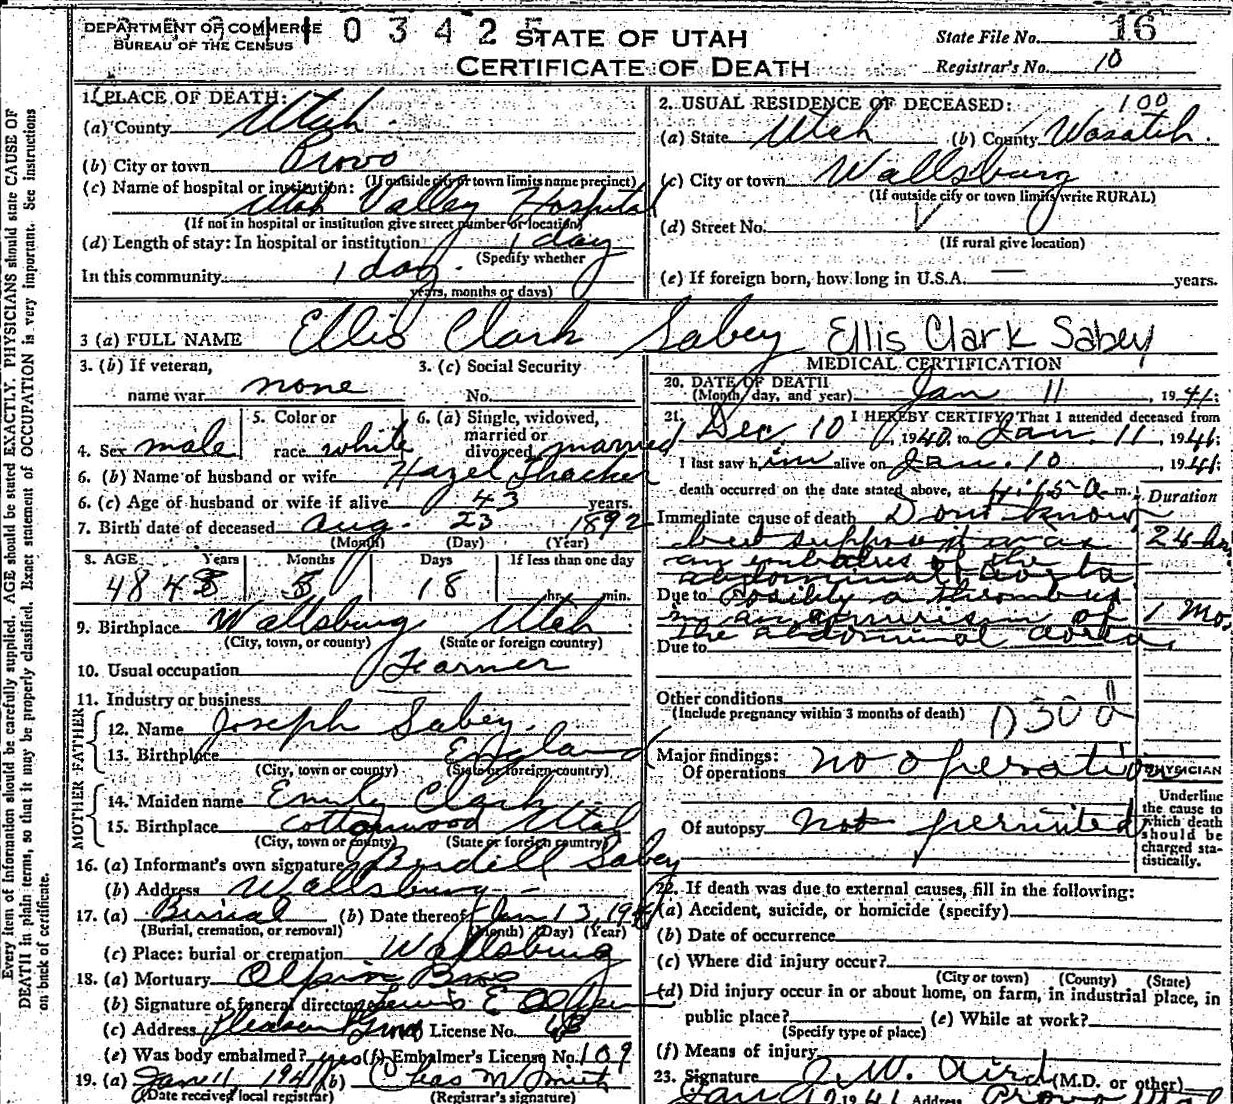 DEPARTMENT OF COMMERCE
BUREAU OF THE CENSUS
1 0 3 4 2 5
STATE OF UTAH
CERTIFICATE OF DEATH
State File No. 16
Registrar's No. 10
1. PLACE OF DEATH:
(a) County Utah
(b) City or town Provo
(If outside city or town limits name precinct)
(c) Name of hospital or institution:
Utah Valley Hospital
(If not in hospital or institution give street number or location)
(d) Length of stay: In hospital or institution 1 day
(Specify whether
In this community 1 day
years, months or days)
2. USUAL RESIDENCE OF DECEASED: 100
(a) State Utah (b) County Wasatch.
(c) City or town Wallsburg
(If outside city or town limits write RURAL)
(d) Street No.
(If rural give location)
(e) If foreign born, how long in U.S.A. — years.
3 (a) FULL NAME Ellis Clark Sabey Ellis Clark Sabey
3. (b) If veteran,
name war none
3. (c) Social Security
No.
4. Sex male
5. Color or
race white
6. (a) Single, widowed,
married or
divorced married
6. (b) Name of husband or wife Hazel Thacker
6. (c) Age of husband or wife if alive 43 years.
7. Birth date of deceased Aug. 23 1892
(Month) (Day) (Year)
8. AGE Years Months Days If less than one day
48 48 5 18 hr. min.
9. Birthplace Wallsburg, Utah
(City, town, or county) (State or foreign country)
10. Usual occupation Farmer
11. Industry or business
FATHER
12. Name Joseph Sabey
13. Birthplace England
(City, town or county) (State or foreign country)
MOTHER
14. Maiden name Emily Clark
15. Birthplace Cottonwood Utah
(City, town or county) (State or foreign country)
16. (a) Informant's own signature Burdell Sabey
(b) Address Wallsburg
17. (a) Burial (b) Date thereof Jan 13, 1941
(Burial, cremation, or removal) (Month) (Day) (Year)
(c) Place: burial or cremation Wallsburg
18. (a) Mortuary Olpin Bros
(b) Signature of funeral director E Olpin
(c) Address Pleasant Grove License No.
(e) Was body embalmed? yes (f) Embalmer's License No. 109
19. (a) Jan 11 1941 (b) Chas M Smith
(Date received local registrar) (Registrar's signature)
MEDICAL CERTIFICATION
20. DATE OF DEATH
(Month, day, and year) Jan 11, 1941.
21. I HEREBY CERTIFY, That I attended deceased from
Dec. 10, 1940, to Jan. 11, 1941.
I last saw him alive on Jan. 10, 1941.
death occurred on the date stated above, at 4:15 a m.
Duration
Immediate cause of death Don't know
best suppose it was 24 hrs
an embolus of the
abdominal aorta.
Due to Possibly a thrombus
in an aneurism of 1 Mo.
the abdominal aorta,
Due to
Other conditions
(Include pregnancy within 3 months of death)
Major findings:
Of operations no operation
PHYSICIAN
Underline
the cause to
which death
should be
charged sta-
tistically.
Of autopsy not permitted
22. If death was due to external causes, fill in the following:
(a) Accident, suicide, or homicide (specify)
(b) Date of occurrence
(c) Where did injury occur?
(City or town) (County) (State)
(d) Did injury occur in or about home, on farm, in industrial place, in
public place? (e) While at work?
(Specify type of place)
(f) Means of injury
23. Signature J. W. Aird (M.D. or other)
1941 Address Provo Utah
Every item of information should be carefully supplied. AGE should be stated EXACTLY. PHYSICIANS should state CAUSE OF
DEATH in plain terms, so that it may be properly classified. Exact statement of OCCUPATION is very important. See instructions
on back of certificate.